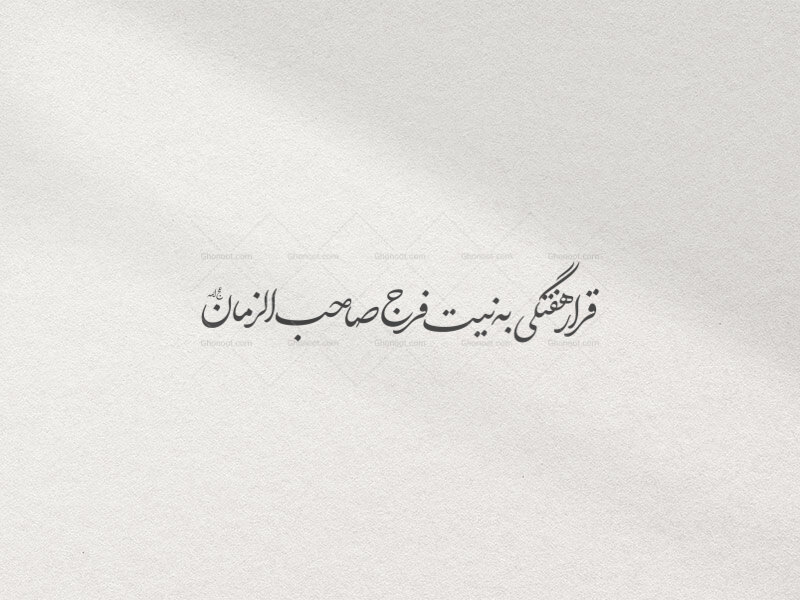 قرار هفتگی به نیت فرج صاحب الزمان عج الله
Ghonoot.com Ghonoot.com Ghonoot.com Ghonoot.com Ghonoot.com
Ghonoot.com Ghonoot.com Ghonoot.com Ghonoot.com Ghonoot.com